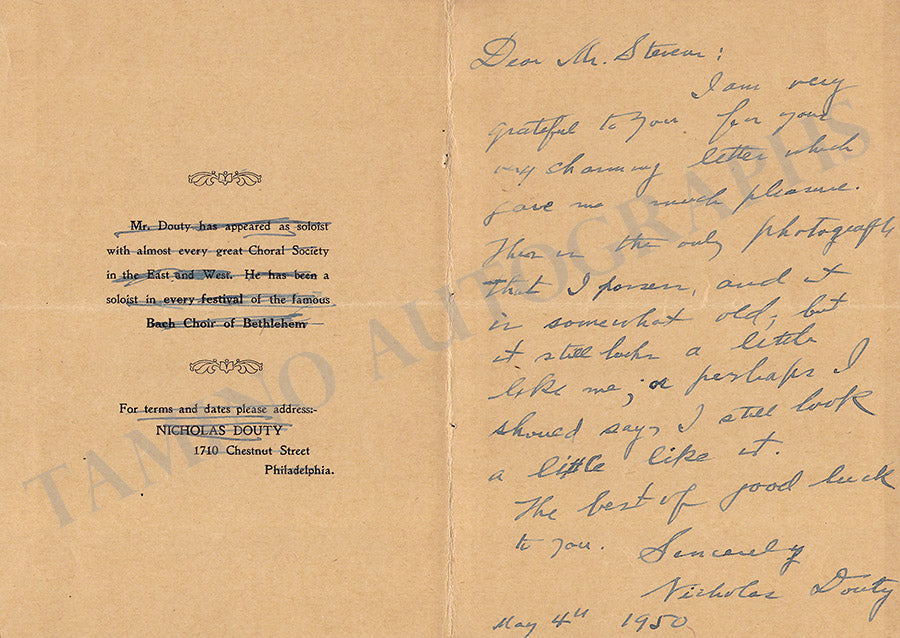 Mr. Douty has appeared as soloist
with almost every great Choral Society
in the East and West. He has been a
soloist in every festival of the famous
Bach Choir of Bethlehem
For terms and dates please address:-
NICHOLAS DOUTY
1710 Chestnut Street
Philadelphia.
Dear Mr. Stevens:
I am very
grateful to you for your
very charming letter which
gave me much pleasure.
This is the only photograph
that I possess, and it
is somewhat old, but
it still looks a little
like me; or perhaps I
should say, I still look
a little like it.
The best of good luck
to you. Sincerely
Nicholas Douty
May 4th 1950
TAMINO AUTOGRAPHS